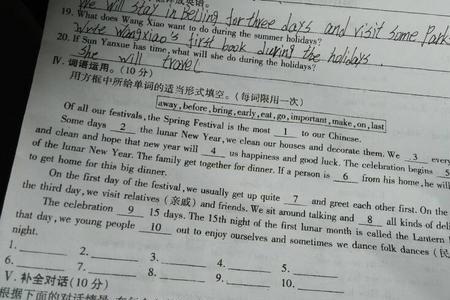 We will stay in Beijing for three days and visit some Park
19. What does Wang Xiao want to do during the summer holidays?
Write Wangxiao's first book during the holidays.
20. If Sun Yanxue has time, what will she do during the holidays?
She will travel
Ⅳ. 词语运用。(10 分)
用方框中所给单词的适当形式填空。(每词限用一次)
away, before, bring, early, eat, go, important, make, on, last
Of all our festivals, the Spring Festival is the most 1 to our Chinese.
Some days 2 the lunar New Year, we clean our houses and decorate them. We 3 every
and clean and hope that new year will 4 us happiness and good luck. The celebration begins 5
of the lunar New Year. The family get together for dinner. If a person is 6 from his home, he will
to get home for this big dinner.
On the first day of the festival, we usually get up quite 7 and greet each other first. On the
the third day, we visit relatives (亲戚) and friends. We sit around talking and 8 all kinds of deli
The celebration 9 15 days. The 15th night of the first lunar month is called the Lantern
that day, we young people 10 out to enjoy ourselves and sometimes we dance folk dances (民
night.
1. 2. 3. 4. 5.
6. 7. 8. 9. 10.
Ⅴ. 补全对话(10 分)
根据下面的对话情景